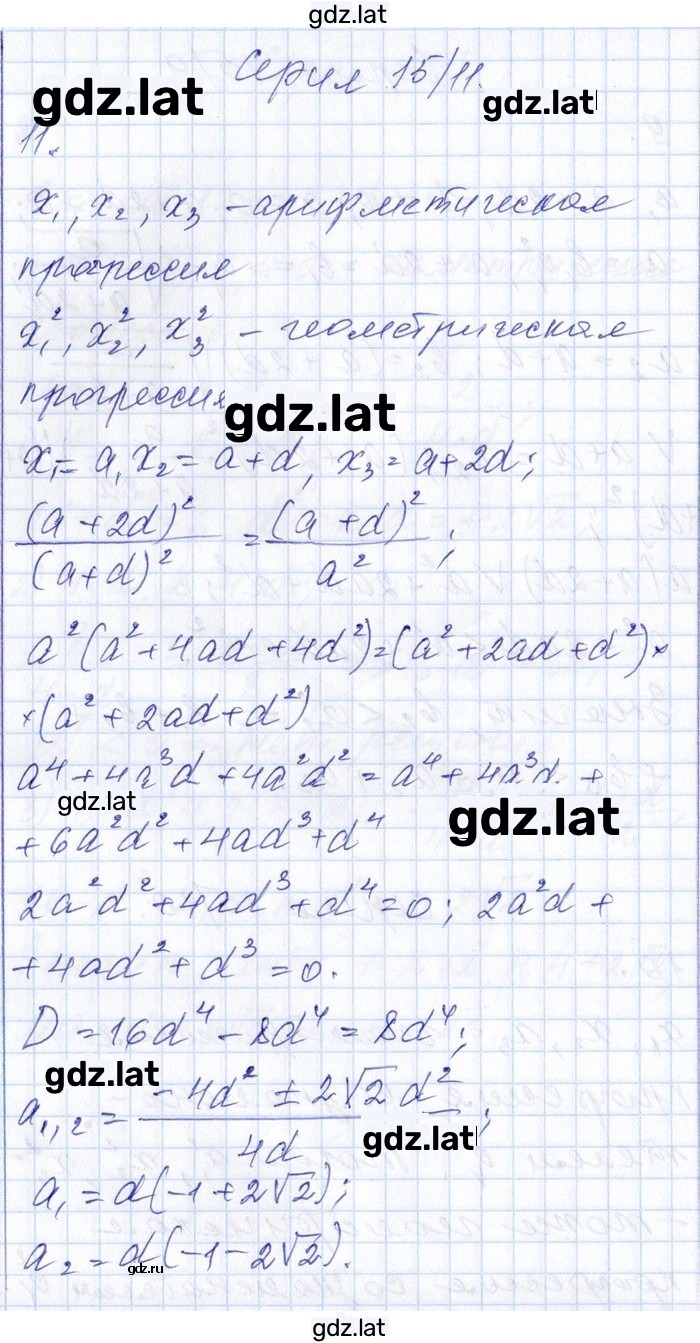 gdz.lat
Серия 15/11.
gdz.lat
gdz.lat
11.
x₁, x₂, x₃ - арифметическая
прогрессия
x₁², x₂², x₃² - геометрическая
прогрессия
gdz.lat
x₁ = a, x₂ = a+d, x₃ = a+2d;
(a+2d)²/(a+d)² = (a+d)²/a²;
a²(a²+4ad+4d²)=(a²+2ad+d²)×
×(a²+2ad+d²)
a⁴+4a³d+4a²d² = a⁴+4a³d+
gdz.lat
gdz.lat
+6a²d²+4ad³+d⁴
2a²d²+4ad³+d⁴=0; 2a²d+
+4ad²+d³=0.
D = 16d⁴-8d⁴=8d⁴;
gdz.lat
a₁,₂ = (-4d² ± 2√2 d²)/4d;
gdz.lat
a₁ = d(-1+2√2);
a₂ = d(-1-2√2).
gdz.ru
gdz.lat